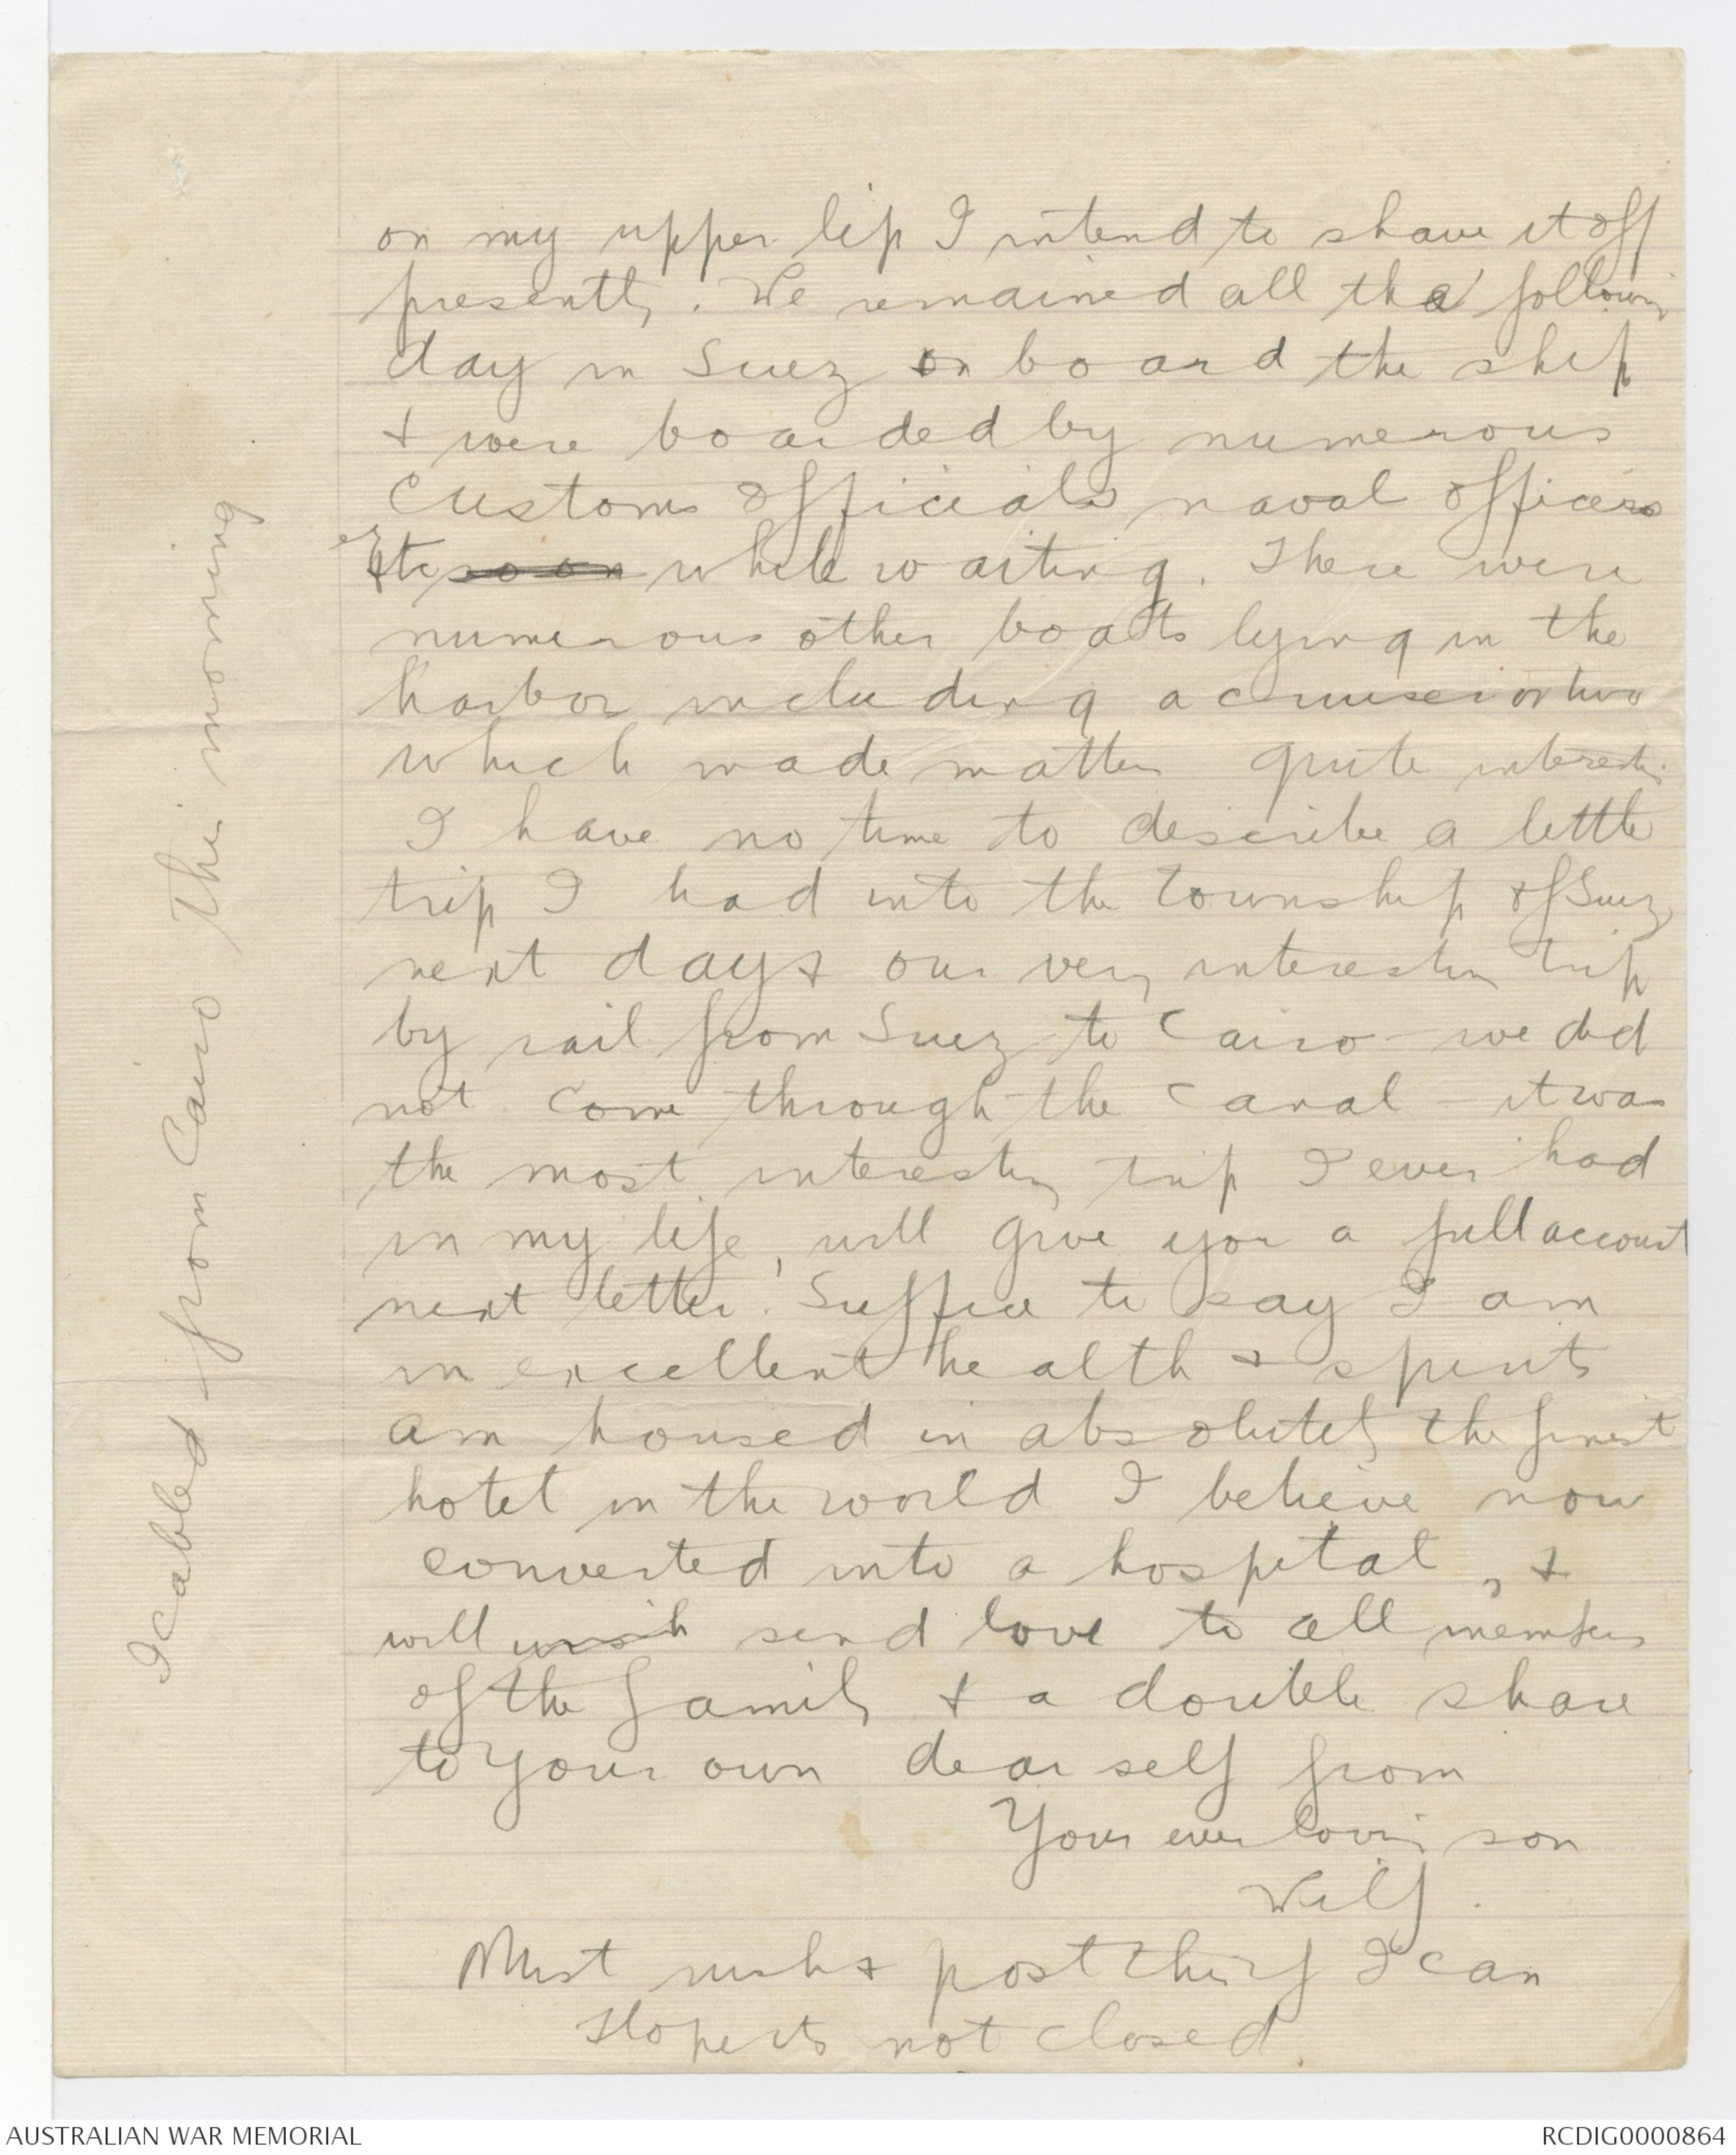 on my upper lip I intend to shave it off
presently. We remained all the following
day in Suez on board the ship
& were boarded by numerous
Customs officials naval officers
etc so on while waiting. There were
numerous other boats lying in the
harbor including a cruiser or two
which made matters quite interesting
I have no time to describe a little
trip I had into the township of Suez
next day & our very interesting trip
by rail from Suez to Cairo - we did
not come through the Canal - it was
the most interesting trip I ever had
in my life, will give you a full account
next letter! Suffice to say I am
in excellent health & spirits
am housed in absolutely the finest
hotel in the world I believe now
converted into a hospital, &
will send love to all members
of the family & a double share
to your own dear self from
Your ever loving son
Wilf.
Must rush & post this if I can
Hope its not closed.
I cabled from Cairo this morning
AUSTRALIAN WAR MEMORIAL
RCDIG0000864